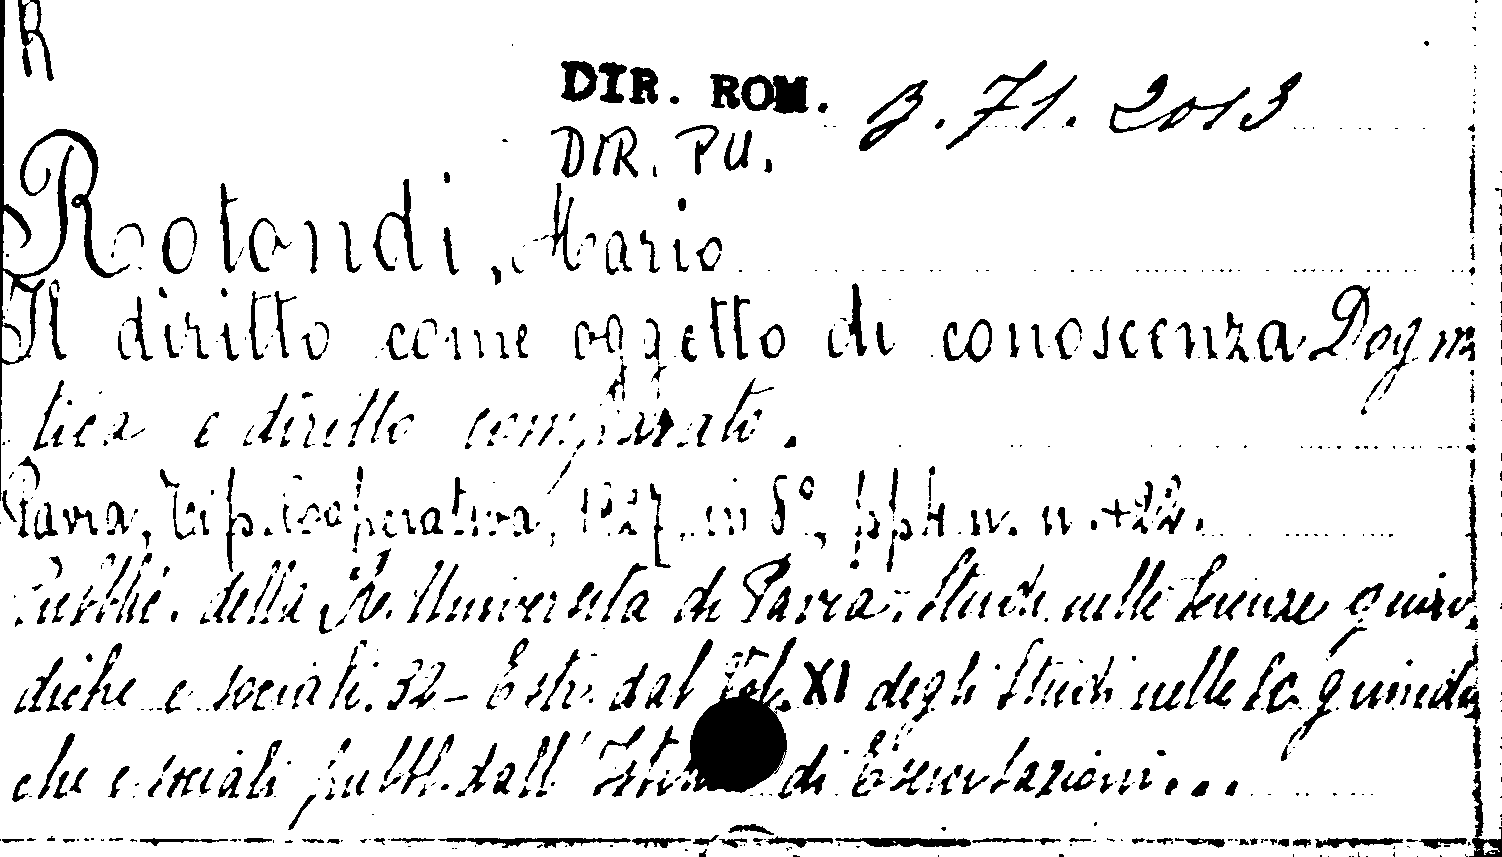 R
DIR. ROM. B. 71. 2013
DIR. PU.
Rotondi, Mario
Il diritto come oggetto di conoscenza Dogma
tica e diritto comparato.
Pavia, Tip. Cooperativa, 1927, in 8°, pp 4 n. n. +22.
Pubbl. della R. Università di Pavia. Studi nelle Scienze giuri
diche e sociali. 32 - Estr. dal Vol. XI degli Studi nelle Sc. giuridi
che e sociali pubbl. dall' Istituto di Esercitazioni...